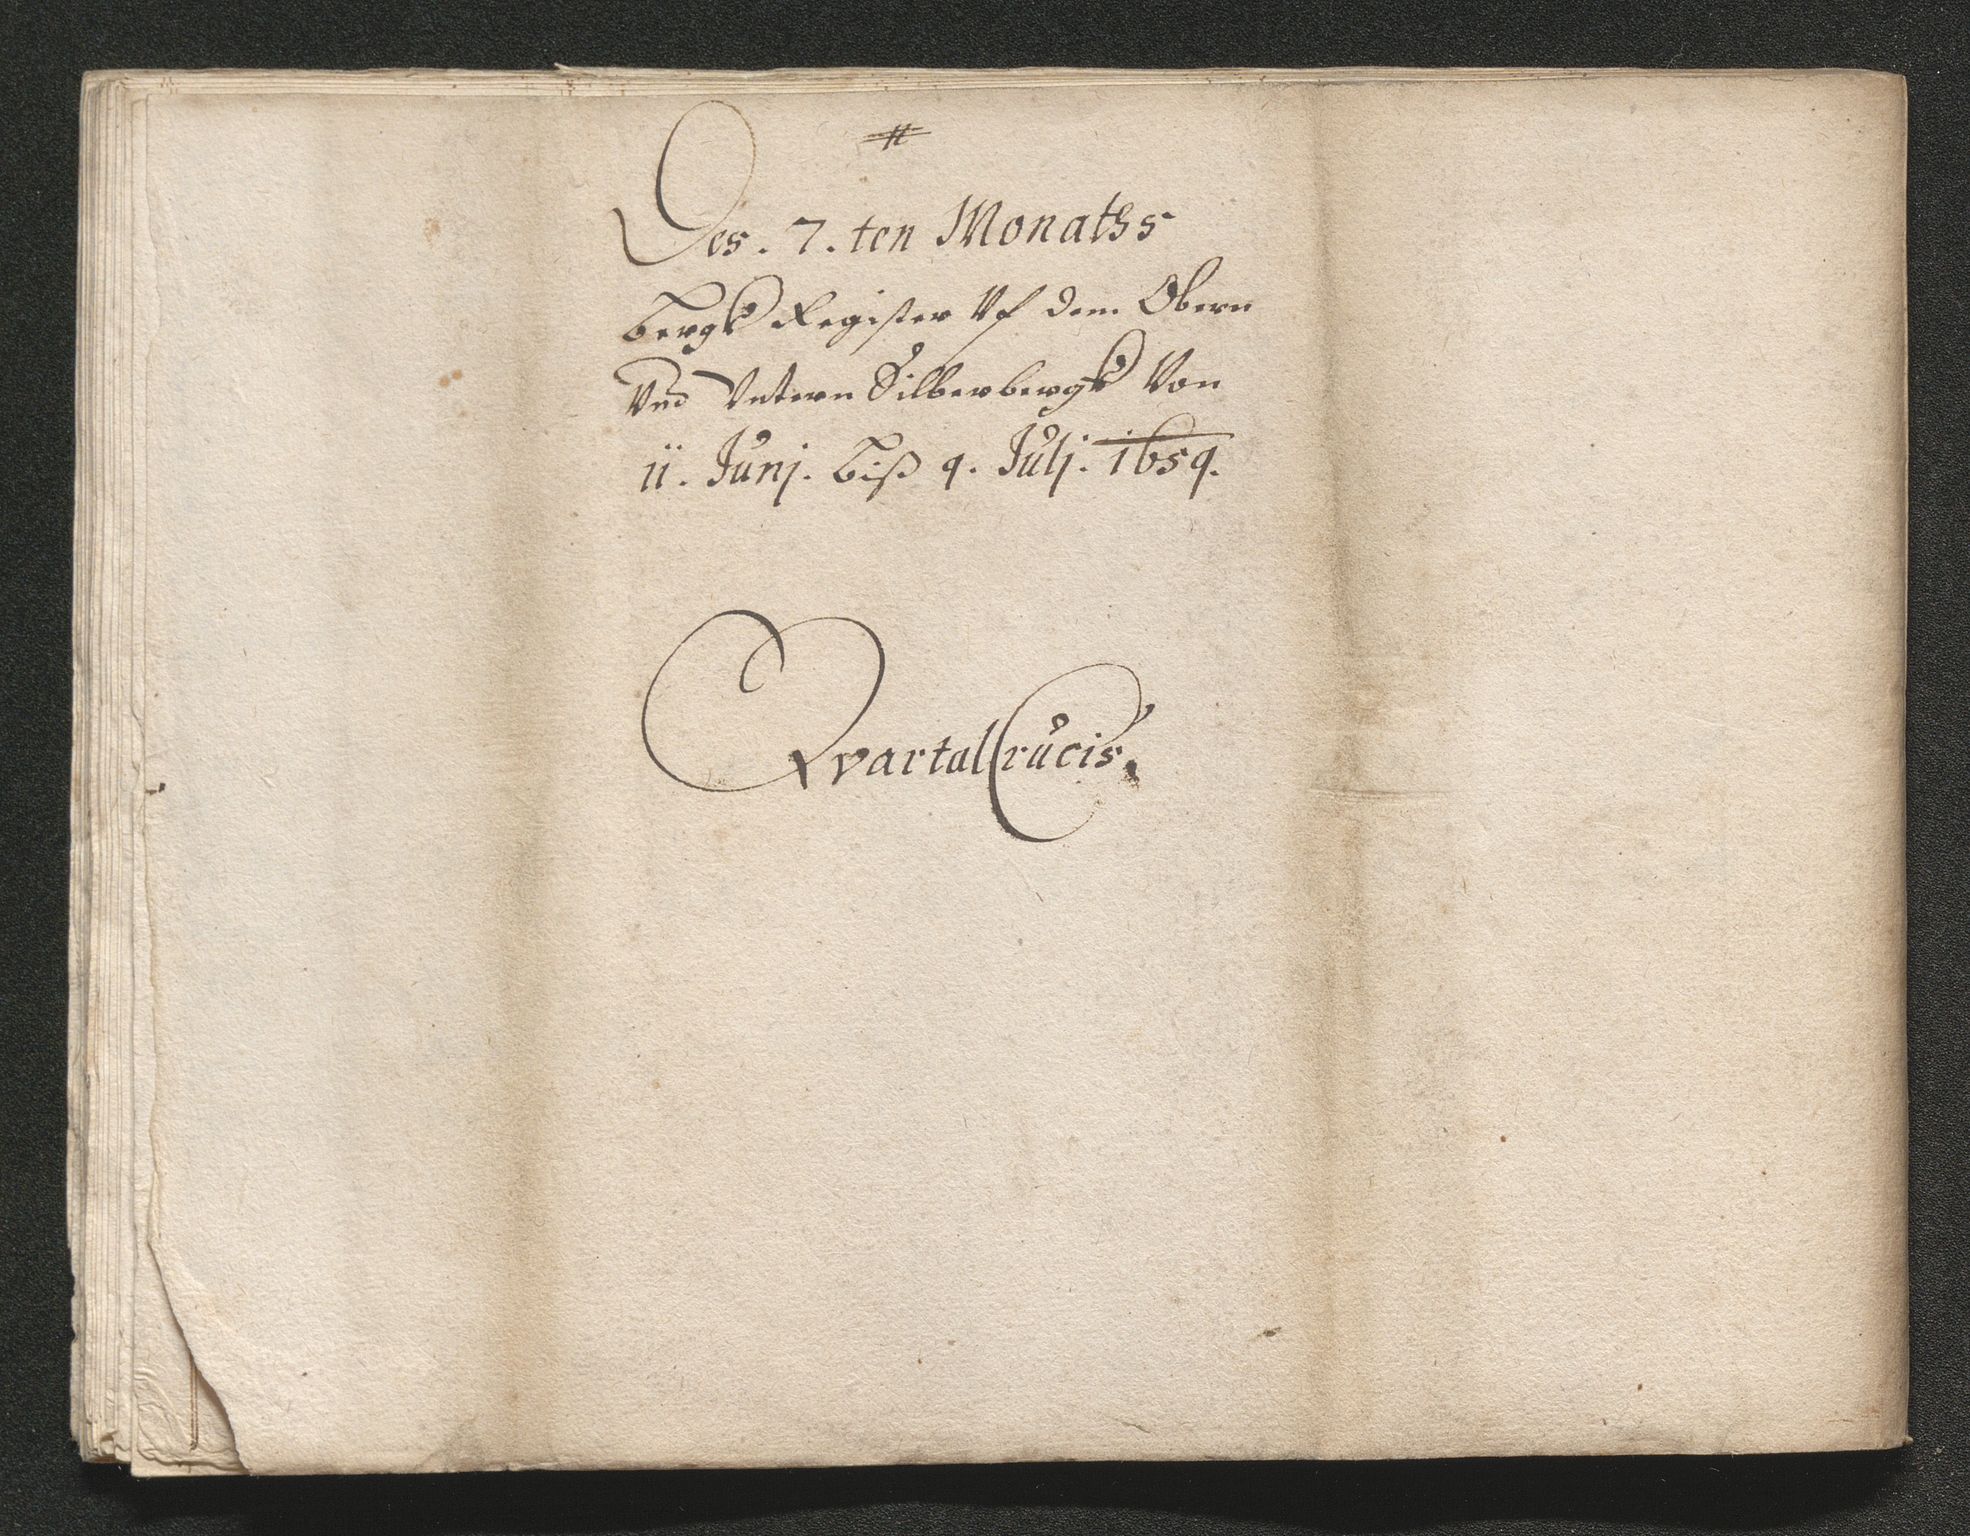 #
Des. 7. ten Monaths
Bergk Register Vf dem Obern
Vnd Vntern Silberbergk Von
11. Junj. Biß 9. Julj. 1659.
Qvartal Crucis.